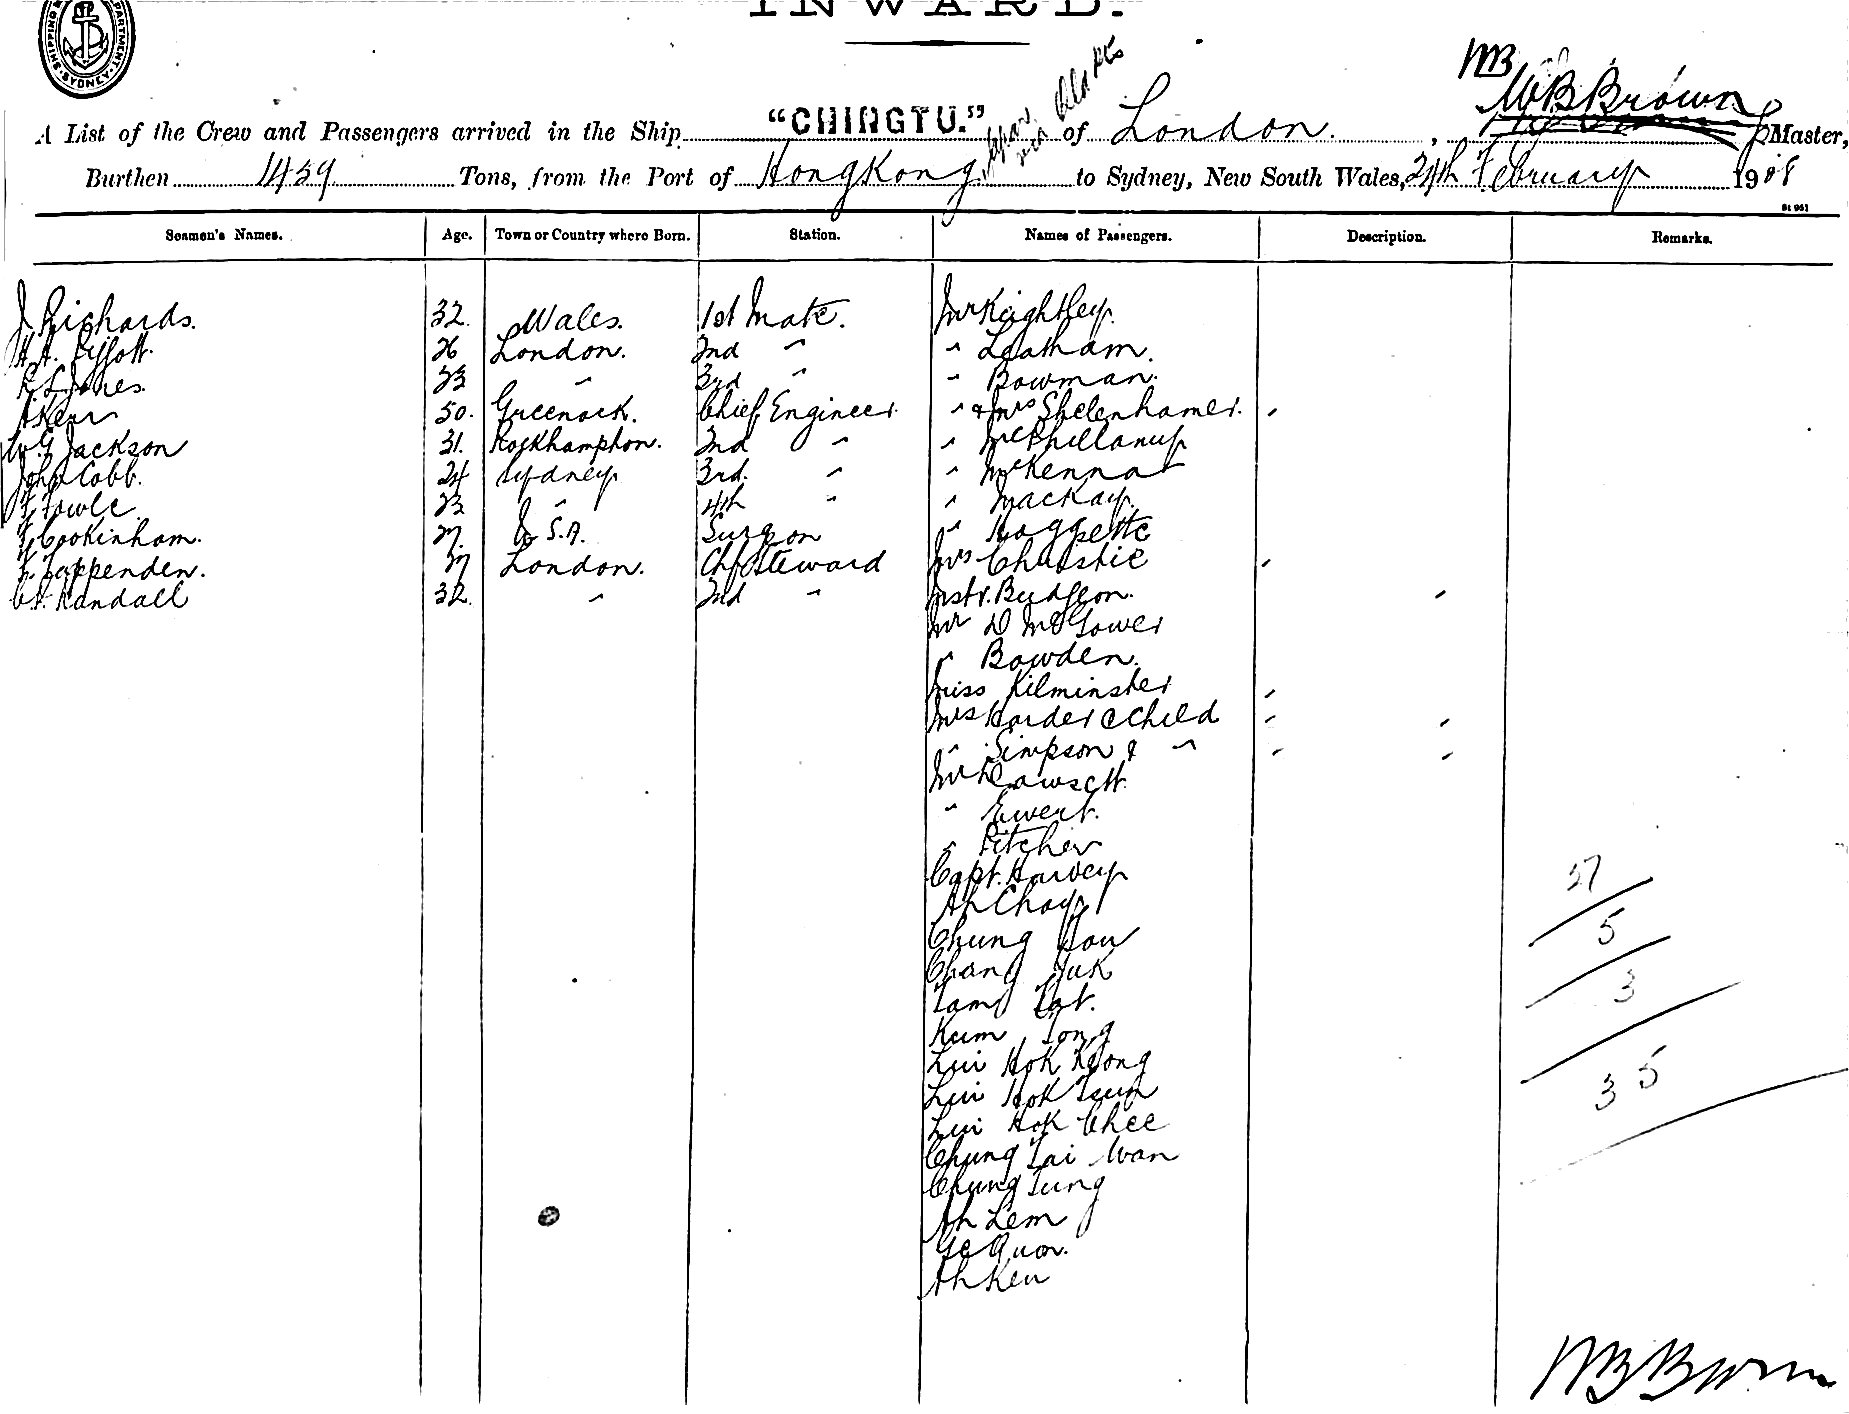 INWARD.
SHIPPING DEPARTMENT. SYDNEY
MB
W B Brown
A List of the Crew and Passengers arrived in the Ship "CHINGTU." of London. , Master,
Japan via Ports
Burthen 1459 Tons, from the Port of HongKong to Sydney, New South Wales, 24th February 1908
St 961
Seamen's Names. Age. Town or Country where Born. Station. Names of Passengers. Description. Remarks.
J Richards. 32. Wales. 1st Mate. Mr Keightley.
H. A. 26 London. 2nd " " Leatham.
Jones. 23 " 3rd " " Bowman.
J Kerr 50. Greenock. Chief Engineer. " & Mrs Shelenhamer.
W. G Jackson 31. Rockhampton. 2nd " " McPhillamy
John Cobb. 24 Sydney 3rd. " " McKenna
F Fowle 23 " 4th " " Mackay.
Cookinham. 27. U S.A. Surgeon " Hoggette
Tappenden. 37 London. Chf Steward Mrs Christie
Randall 32. " 2nd " Mstr. Budgeon.
Mr D McGower
" Bowden.
Miss Kilminster
Mrs Harder & Child
" Simpson & "
Mr Dawsett.
" Ewert.
" Pitcher
Capt. Harvey
Ah Choy
Chung You
Chang Yuk
Tam Tat.
Kum Tong
Lui Hok Keong
Lui Hok Tsun
Lui Hok Chee
Chung Tai Wan
Chung Tung
Ah Lem
Ge Quon.
Ah Ken
37
5
3
35
W B Brown